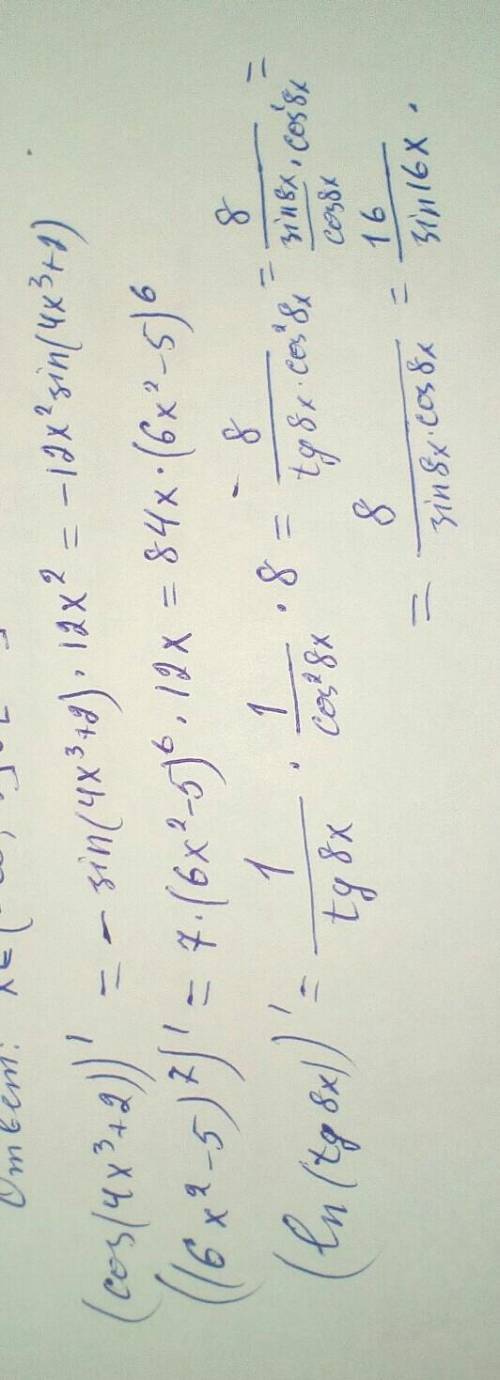 Ответ: x∈(-∞;
(cos(4x³+2))' = - sin(4x³+2)·12x² = -12x² sin(4x³+2)
((6x²-5)⁷)' = 7·(6x²-5)⁶·12x = 84x·(6x²-5)⁶
(ln(tg 8x))' = 1/(tg 8x) · 1/(cos²8x) · 8 = 8/(tg 8x·cos²8x) = 8/((sin 8x/cos 8x)·cos²8x) =
= 8/(sin 8x·cos 8x) = 16/(sin 16x).